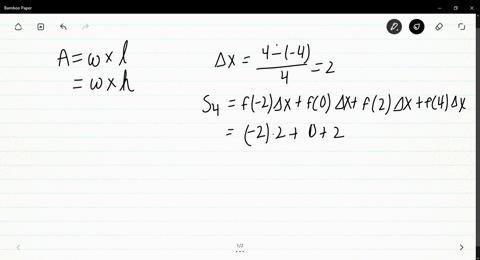 Bamboo Paper
A = w × l
= w × h
Δx = \frac{4 - (-4)}{4} = 2
S₄ = f(-2) Δx + f(0) Δx + f(2) Δx + f(4) Δx
= (-2) · 2 + 0 + 2
1/2